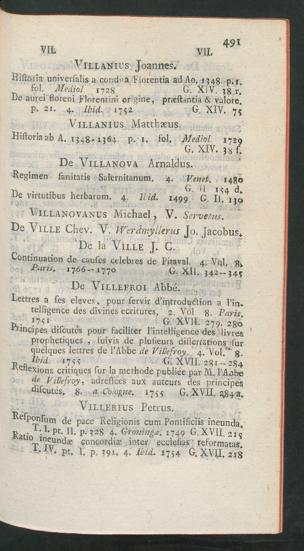 491
VIL VIL
VILLANIUS Joannes.
Historia universalis a condita Florentia ad Ao. 1348 p. 1.
fol. Mediol 1728 G. XIV. 38 1.
De aurei floreni Florentini origine, præstantia & valore.
p. 21. 4. Ibid. 1752 G. XIV. 75
VILLANIUS Matthæus.
Historia ab A. 1348-1364. p. 1. fol. Mediol 1729
G. XIV. 38 f.
De VILLANOVA Arnaldus.
Regimen sanitatis Salernitanum. 4. Venet. 1480
G. II 154 d.
De virtutibus herbarum. 4. Ibid. 1499 G. II. 130
VILLANOVANUS Michael, V. Servetus.
De VILLE Chev. V. Werdmyllerus Jo. Jacobus.
De la VILLE J. C.
Continuation de causes celebres de Pitaval. 4. Vol. 8.
Paris. 1766-1770 G. XII. 342-345
De VILLEFROI Abbé.
Lettres a ses eleves, pour servir d'introduction a l'in-
telligence des divines ecritures, 2. Vol 8. Paris.
1751 G. XVII. 279. 280
Principes discutés pour faciliter l'intelligence des livres
prophetiques, suivis de plusieurs dissertations sur
quelques lettres de l'Abbé de Villefroy. 4. Vol. 8.
Ibid. 1755 G. XVII. 281-284
Reflexions critiques sur la methode publiée par M. l'Abbé
de Villefroy, adressées aux auteurs des principes
discutés, 8. a Cologne. 1755 G. XVII. 284 a.
VILLERIUS Petrus.
Responsum de pace Religionis cum Pontificiis ineunda.
T. I. pt. II. p. 328 4. Groningæ. 1749 G. XVII. 215
Ratio ineundæ concordiæ inter ecclesias reformatas.
T. IV. pt. I. p. 391. 4. Ibid. 1754 G. XVII. 218